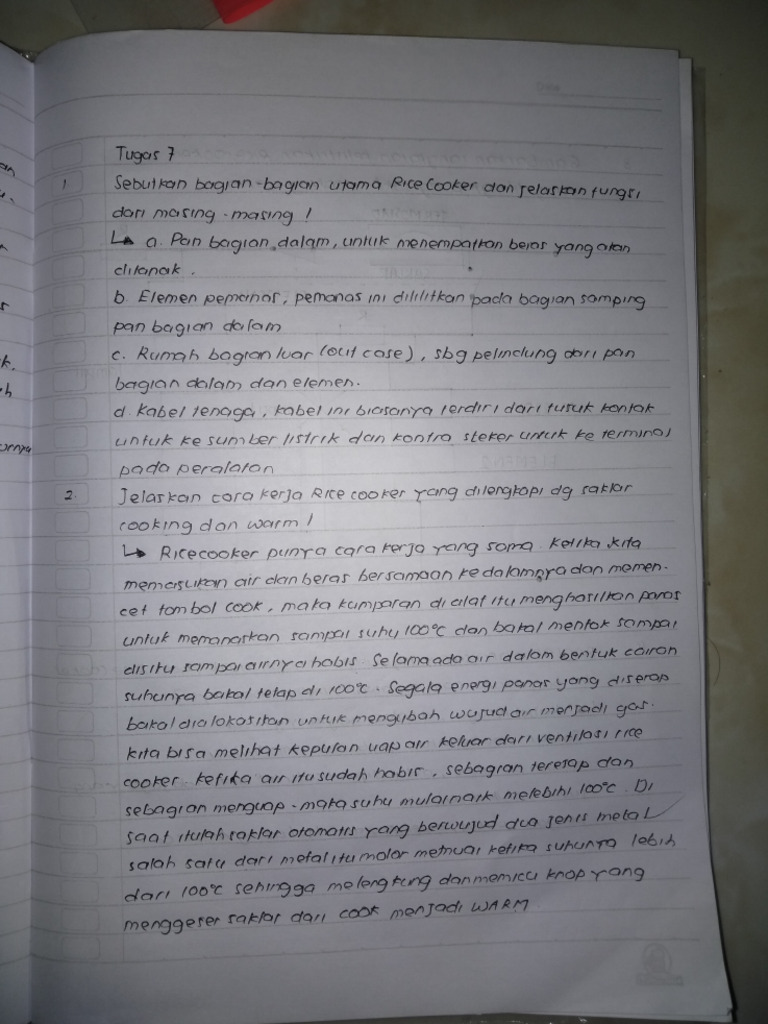 Tugas 7
1 Sebutkan bagian-bagian utama Rice Cooker dan jelaskan fungsi
dari masing-masing !
↳ a. Pan bagian dalam, untuk menempatkan beras yang akan
ditanak.
b. Elemen pemanas, pemanas ini dililitkan pada bagian samping
pan bagian dalam
c. Rumah bagian luar (out case), sbg pelindung dari pan
bagian dalam dan elemen.
d. Kabel tenaga, kabel ini biasanya terdiri dari tusuk kontak
untuk ke sumber listrik dan kontra steker untuk ke terminal
pada peralatan
2. Jelaskan cara kerja Rice cooker yang dilengkapi dg saklar
cooking dan warm !
↳ Ricecooker punya cara kerja yang sama. Ketika kita
memasukan air dan beras bersamaan ke dalamnya dan memen-
cet tombol cook, maka kumparan di alat itu menghasilkan panas
untuk memanaskan sampai suhu 100°C dan bakal mentok sampai
disitu sampai airnya habis. Selama ada air dalam bentuk cairan
suhunya bakal tetap di 100°C. Segala energi panas yang diserap
bakal dialokasikan untuk mengubah wujud air menjadi gas.
kita bisa melihat kepulan uap air keluar dari ventilasi rice
cooker. ketika air itu sudah habis, sebagian teresap dan
sebagian menguap - maka suhu mulai naik melebihi 100°C. Di
saat itulah saklar otomatis yang berwujud dua jenis metal
salah satu dari metal itu molor memuai ketika suhunya lebih
dari 100°C sehingga melengkung dan memicu knop yang
menggeser saklar dari cook menjadi WARM